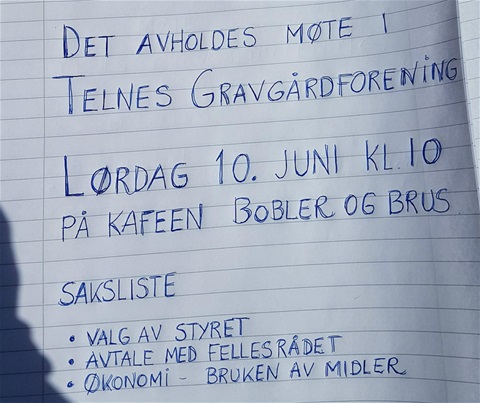 DET AVHOLDES MØTE I
TELNES GRAVGÅRDFORENING
LØRDAG 10. JUNI KL. 10
PÅ KAFEEN BOBLER OG BRUS
SAKSLISTE
• VALG AV STYRET
• AVTALE MED FELLESRÅDET
• ØKONOMI - BRUKEN AV MIDLER